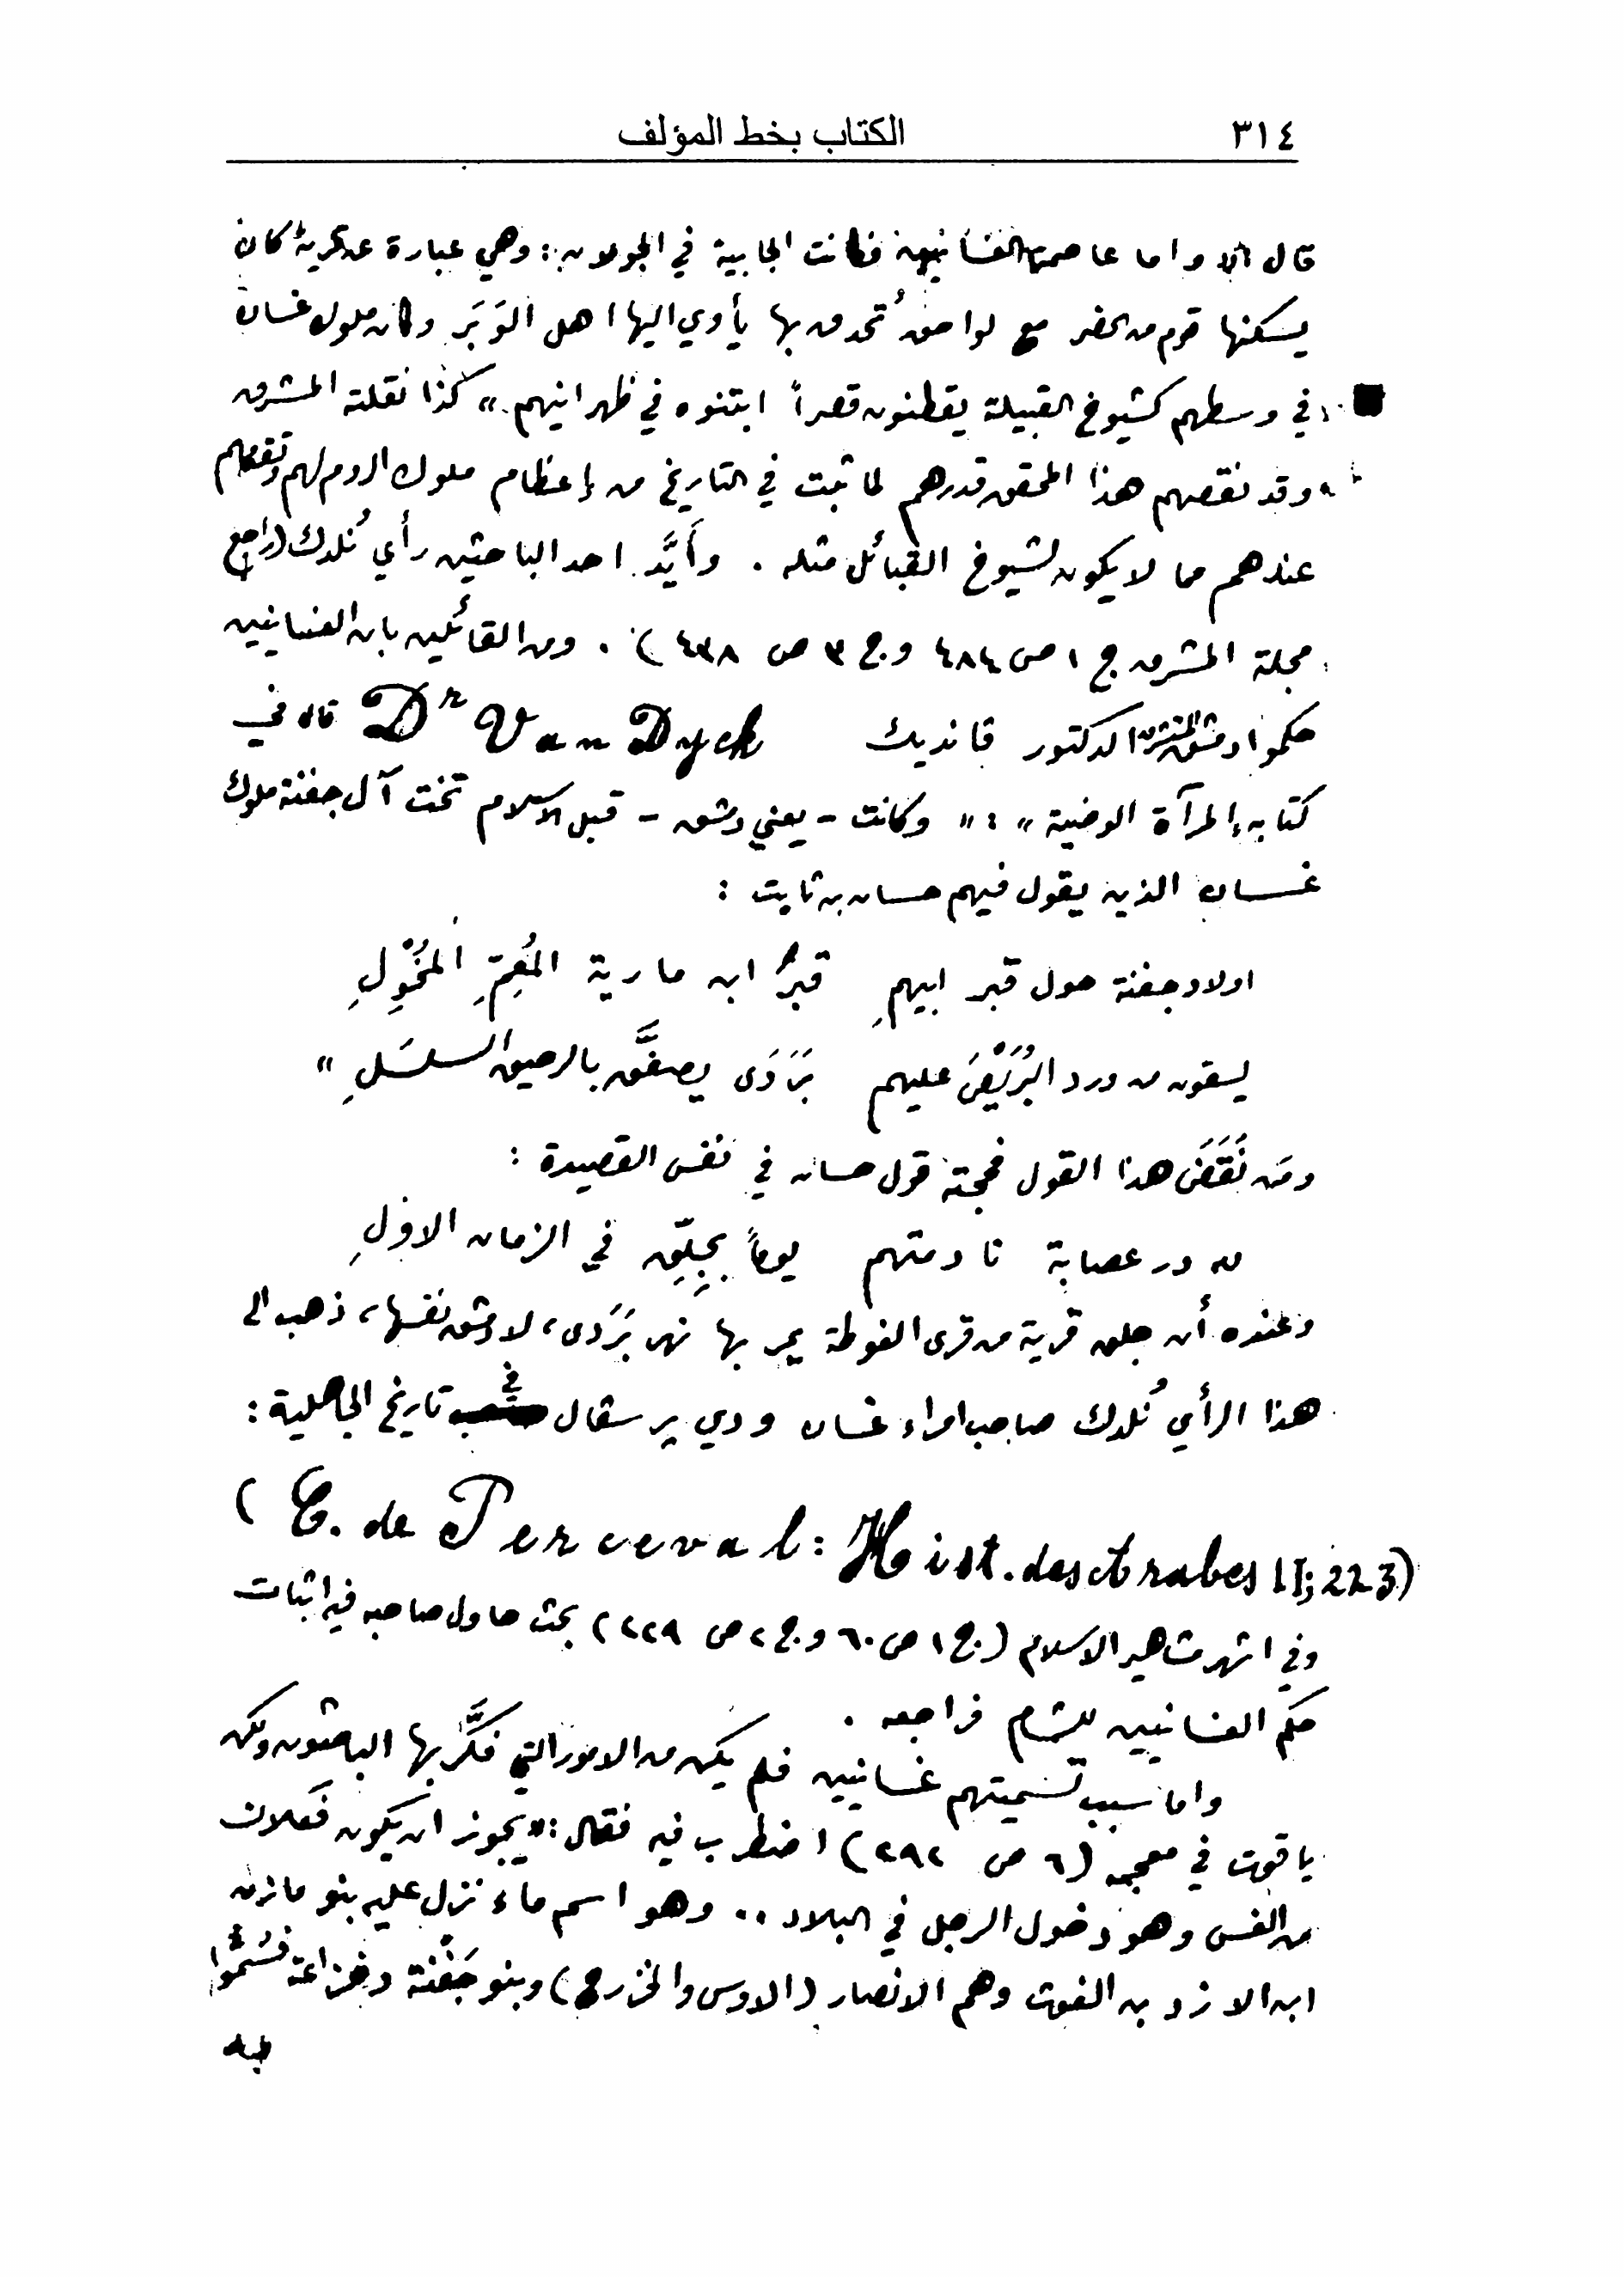 ٣١٤ الكتاب بخط المؤلف
قال واما عاصمة الغسانيين فكانت الجابية في الجولان: وهي عبارة عن قرية كان
يسكنها قوم من الحضر مع لواحق تُحدق بها يأوي اليها اهل الوَبَر وكان ملوك غسان
في وسطهم كشيوخ القبيلة يقطنون قصراً ابتنوه في ظهرانيهم » كذا نقلته المشرق
وقد نقصهم هذا المحقق قدرهم لما ثبت في التاريخ من إعظام ملوك الروم لهم
عندهم مما لا يكون لشيوخ القبائل مثله . وأيَّد احد الباحثين رأي نُلدك (راجع
مجلة المشرق ج ١ ص ٤٨٤ وج ٣ ص ٤٣٨) . ومن القائلين بان الغسانيين
حكموا دمشق الدكتور ڤانديك Dr Van Dyck قال في
كتابه إلمرآة الوضية » : « وكانت - يعني دمشق - قبل الاسلام تخت آل جفنة ملوك
غسان الذين يقول فيهم حسان بن ثابت :
اولاد جفنة حول قبر ابيهمِ قبرُ ابن مارية المُعِمِّ المُخْوِلِ
يسقون من ورد البَرَيْصَ عليهم بَرَدَى يصفَّق بالرحيق السلسَلِ »
ومَن نَقَضَ هذا القول فحجته قول حسان في نفس القصيدة :
لله در عصابة نادمتهم يوماً بجِلِّق في الزمان الاولِ
وعنده أن جلق قرية من قرى الغوطة يمر بها نهر بَرَدى، لا دمشق نفسها، ذهب الى
هذا الرأي نُلدك صاحب امراء غسان ودي پرسڤال في تاريخ الجاهلية :
(C. de Perceval: Hist. des Arabes II; 223)
وفي اشهر مشاهير الاسلام (ج ١ ص ٦٠ وج ٢ ص ٢٢٩) بحث حاول صاحبه فيه اثبات
حكم الغسانيين للشام فراجعه .
واما سبب تسميتهم غسانيين فلم يكن من الامور التي فكَّر بها الباحثون ولكن
ياقوت في معجمه (٦ ص ٢٩٢) اضطرب فيه فقال : «يجوز ان يكون فَعلان
من الغس وهو دخول الرجل في البلاد .. وهو اسم ماء نزل عليه بنو مازن
ابن الازد بن الغوث وهم الانصار (الاوس والخزرج) وبنو جَفْنة وخزاعة فسُمُّوا
به